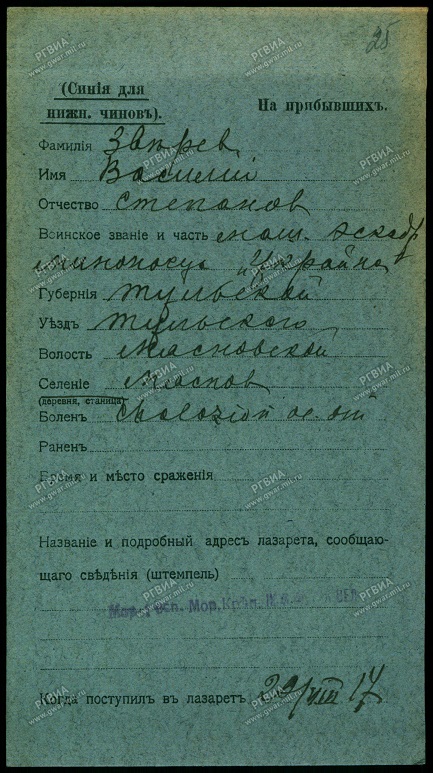 25
(Синія для
нижн. чиновъ).
На прибывшихъ.
Фамилія Звѣрев
Имя Василий
Отчество Степанов
Воинское званіе и часть маш.
миноносца "Украйна
Губернія Тульской
Уѣздъ Тульского
Волость Масновской
Селеніе Маслов
(деревня, станица)
Боленъ
Раненъ
Время и мѣсто сраженія
Названіе и подробный адресъ лазарета, сообщаю-
щаго свѣдѣнія (штемпель)
Мор. Крѣп.
Когда поступилъ въ лазаретъ 29/VIII 17
РГВИА
www.gwar.mil.ru